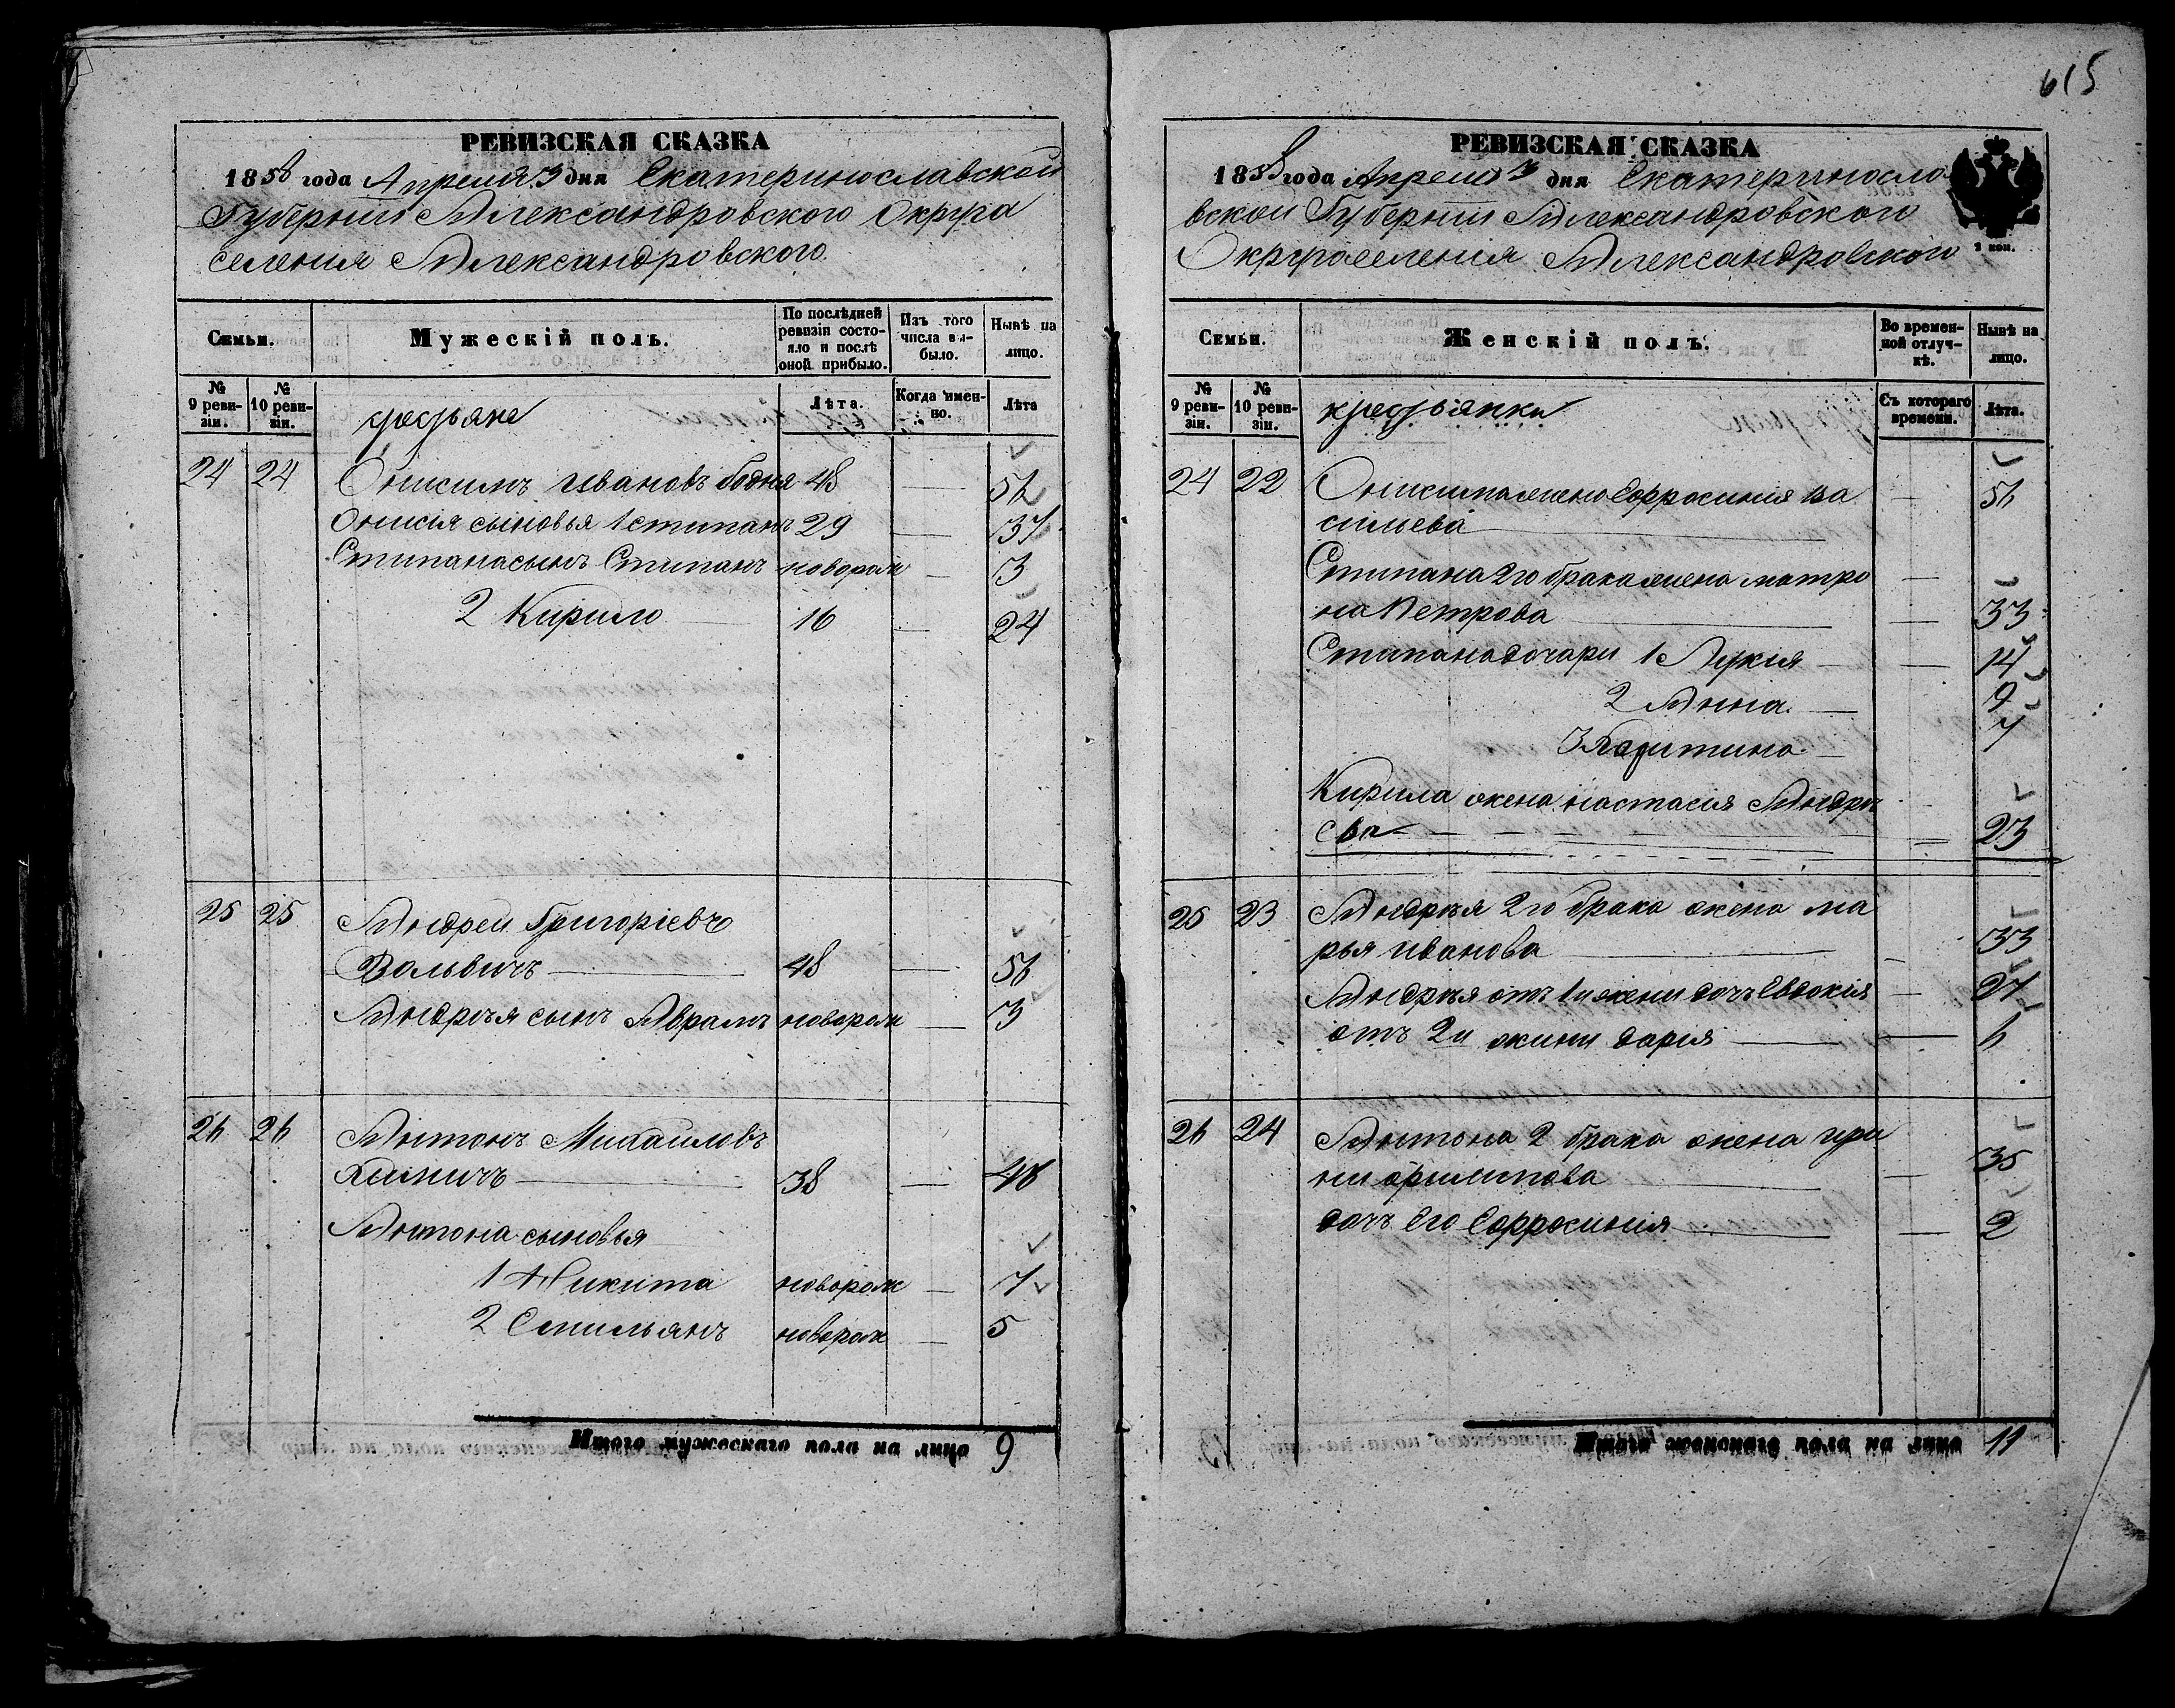 615
РЕВИЗСКАЯ СКАЗКА
1858 года Апреля 3 дня Екатеринославской
Губерніи Александровского Округа
селения Александровского.
Семьи.
Мужескій полъ.
По послѣдней ревизіи состояло и послѣ оной прибыло.
Изъ того числа выбыло.
Нынѣ на лицо.
№ 9 ревизіи.
№ 10 ревизіи.
крестьяне
Лѣта.
Когда именно.
Лѣта
24 24 Онисимъ Ивановъ Бодня 48 — 56
Онисія сыновья 1 степанъ 29 — 37
Стипана сынъ Стипанъ новорож — 3
2 Кирило 16 — 24
25 25 Андрей Григоріевъ
Вольвичъ 48 — 56
Андрѣя сынъ Аврамъ новорож — 3
26 26 Антонъ Михаиловъ
Химичъ 38 — 46
Антона сыновья
1 Никита новорож — 7
2 Емильянъ новорож — 5
Итого мужескаго пола на лицо 9
РЕВИЗСКАЯ СКАЗКА
1858 года Апреля 3 дня Екатериносла
вской Губерніи Александровского
Округа селенія Александровского
2 коп.
Семьи.
Женскій полъ.
Во временной отлучкѣ.
Нынѣ на лицо.
№ 9 ревизіи.
№ 10 ревизіи.
крестьянки
Съ котораго времени.
Лѣта.
24 22 Онисима жена Ефросинія Ва — 56
сильева
Стипана 2го брака жена матро —
на Петрова — 33
Стипана дочари 1 Лукія — 14
2 Анна — 9
3 — 7
Кирила жена настасія Андрѣ
ева — 23
25 23 Андрѣя 2го брака жена ма
рья иванова — 33
Андрѣя отъ 1й жени дочъ Евдокія — 21
отъ 2й жини дарія — 6
26 24 Антона 2 брака жена ири
ни филипова — 35
дочъ Его Ефросинія — 2
Итого женскаго пола на лицо 11